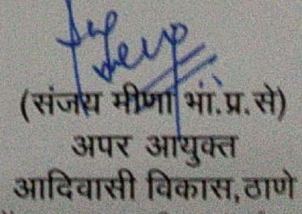 (संजय मीणा भां.प्र.से)
अपर आयुक्त
आदिवासी विकास,ठाणे